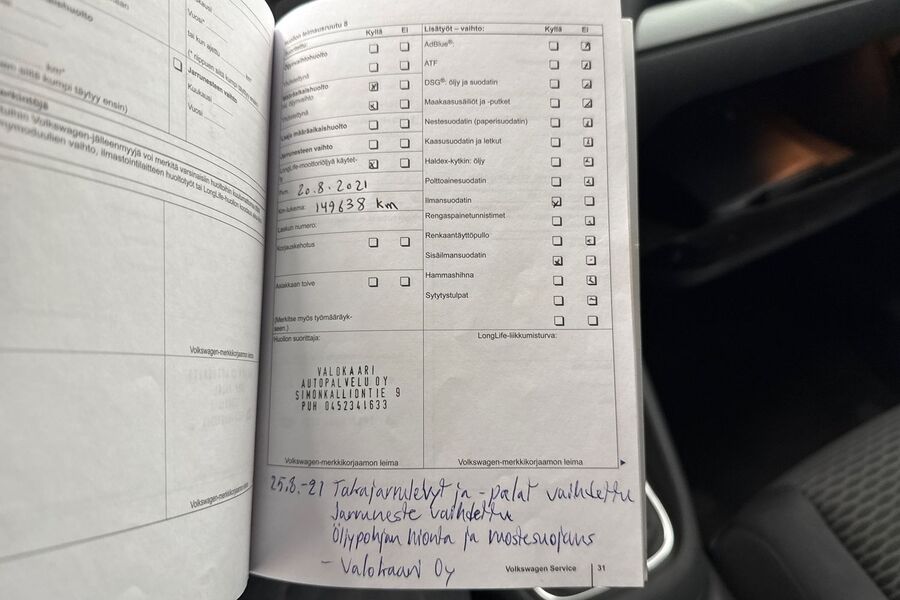 Vuosi*
tai kun ajettu
km*
(* riippuen siitä kumpi täytyy ensin)
Jarrunesteen vaihto
Kuukausi
Vuosi
km*
siitä kumpi täytyy ensin)
Volkswagen-jälleenmyyjä voi merkitä varsinaisiin huoltoihin
vaihto, ilmastointilaitteen huoltotyöt tai LongLife-huollon
Volkswagen-merkkikorjaamon leima
Volkswagen-merkkikorjaamon leima
Huollon leimausruutu 8
Kyllä Ei
Öljynvaihtohuolto
Määräaikaishuolto
sis. öljynvaihto
Laaja määräaikaishuolto
Jarrunesteen vaihto
LongLife-moottoriöljyä käytet-
Pvm. 20.8.2021
Km-lukema: 149638 km
Laskun numero:
Korjauskehotus
Asiakkaan toive
(Merkitse myös työmääräyk-
seen.)
Huollon suorittaja:
VALOKAARI
AUTOPALVELU OY
SIMONKALLIONTIE 9
PUH 0452341633
Volkswagen-merkkikorjaamon leima
Lisätyöt – vaihto: Kyllä Ei
AdBlue®:
ATF
DSG®: öljy ja suodatin
Maakaasusäiliöt ja -putket
Nestesuodatin (paperisuodatin)
Kaasusuodatin ja letkut
Haldex-kytkin: öljy
Polttoainesuodatin
Ilmansuodatin
Rengaspainetunnistimet
Renkaantäyttöpullo
Sisäilmansuodatin
Hammashihna
Sytytystulpat
LongLife-liikkumisturva:
Volkswagen-merkkikorjaamon leima
25.8.-21 Takajarrulevyt ja -palat vaihdettu
Jarruneste vaihdettu
Öljypohjan hionta ja ruostesuojaus
- Valokaari Oy
Volkswagen Service 31